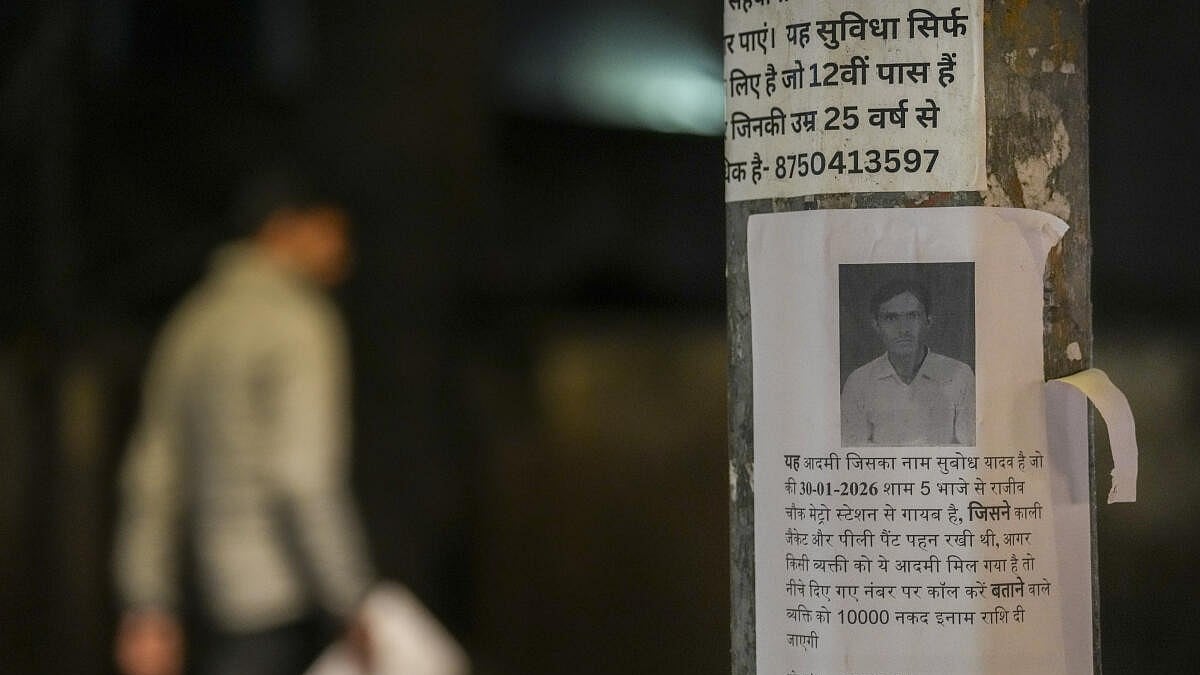 र पाएं। यह सुविधा सिर्फ
लिए है जो 12वीं पास हैं
जिनकी उम्र 25 वर्ष से
धिक है- 8750413597
यह आदमी जिसका नाम सुबोध यादव है जो
की 30-01-2026 शाम 5 भाजे से राजीव
चौक मेट्रो स्टेशन से गायब है, जिसने काली
जैकेट और पीली पैंट पहन रखी थी, आगर
किसी व्यक्ती को ये आदमी मिल गया है तो
नीचे दिए गए नंबर पर कॉल करें बताने वाले
व्यक्ति को 10000 नकद इनाम राशि दी
जाएगी